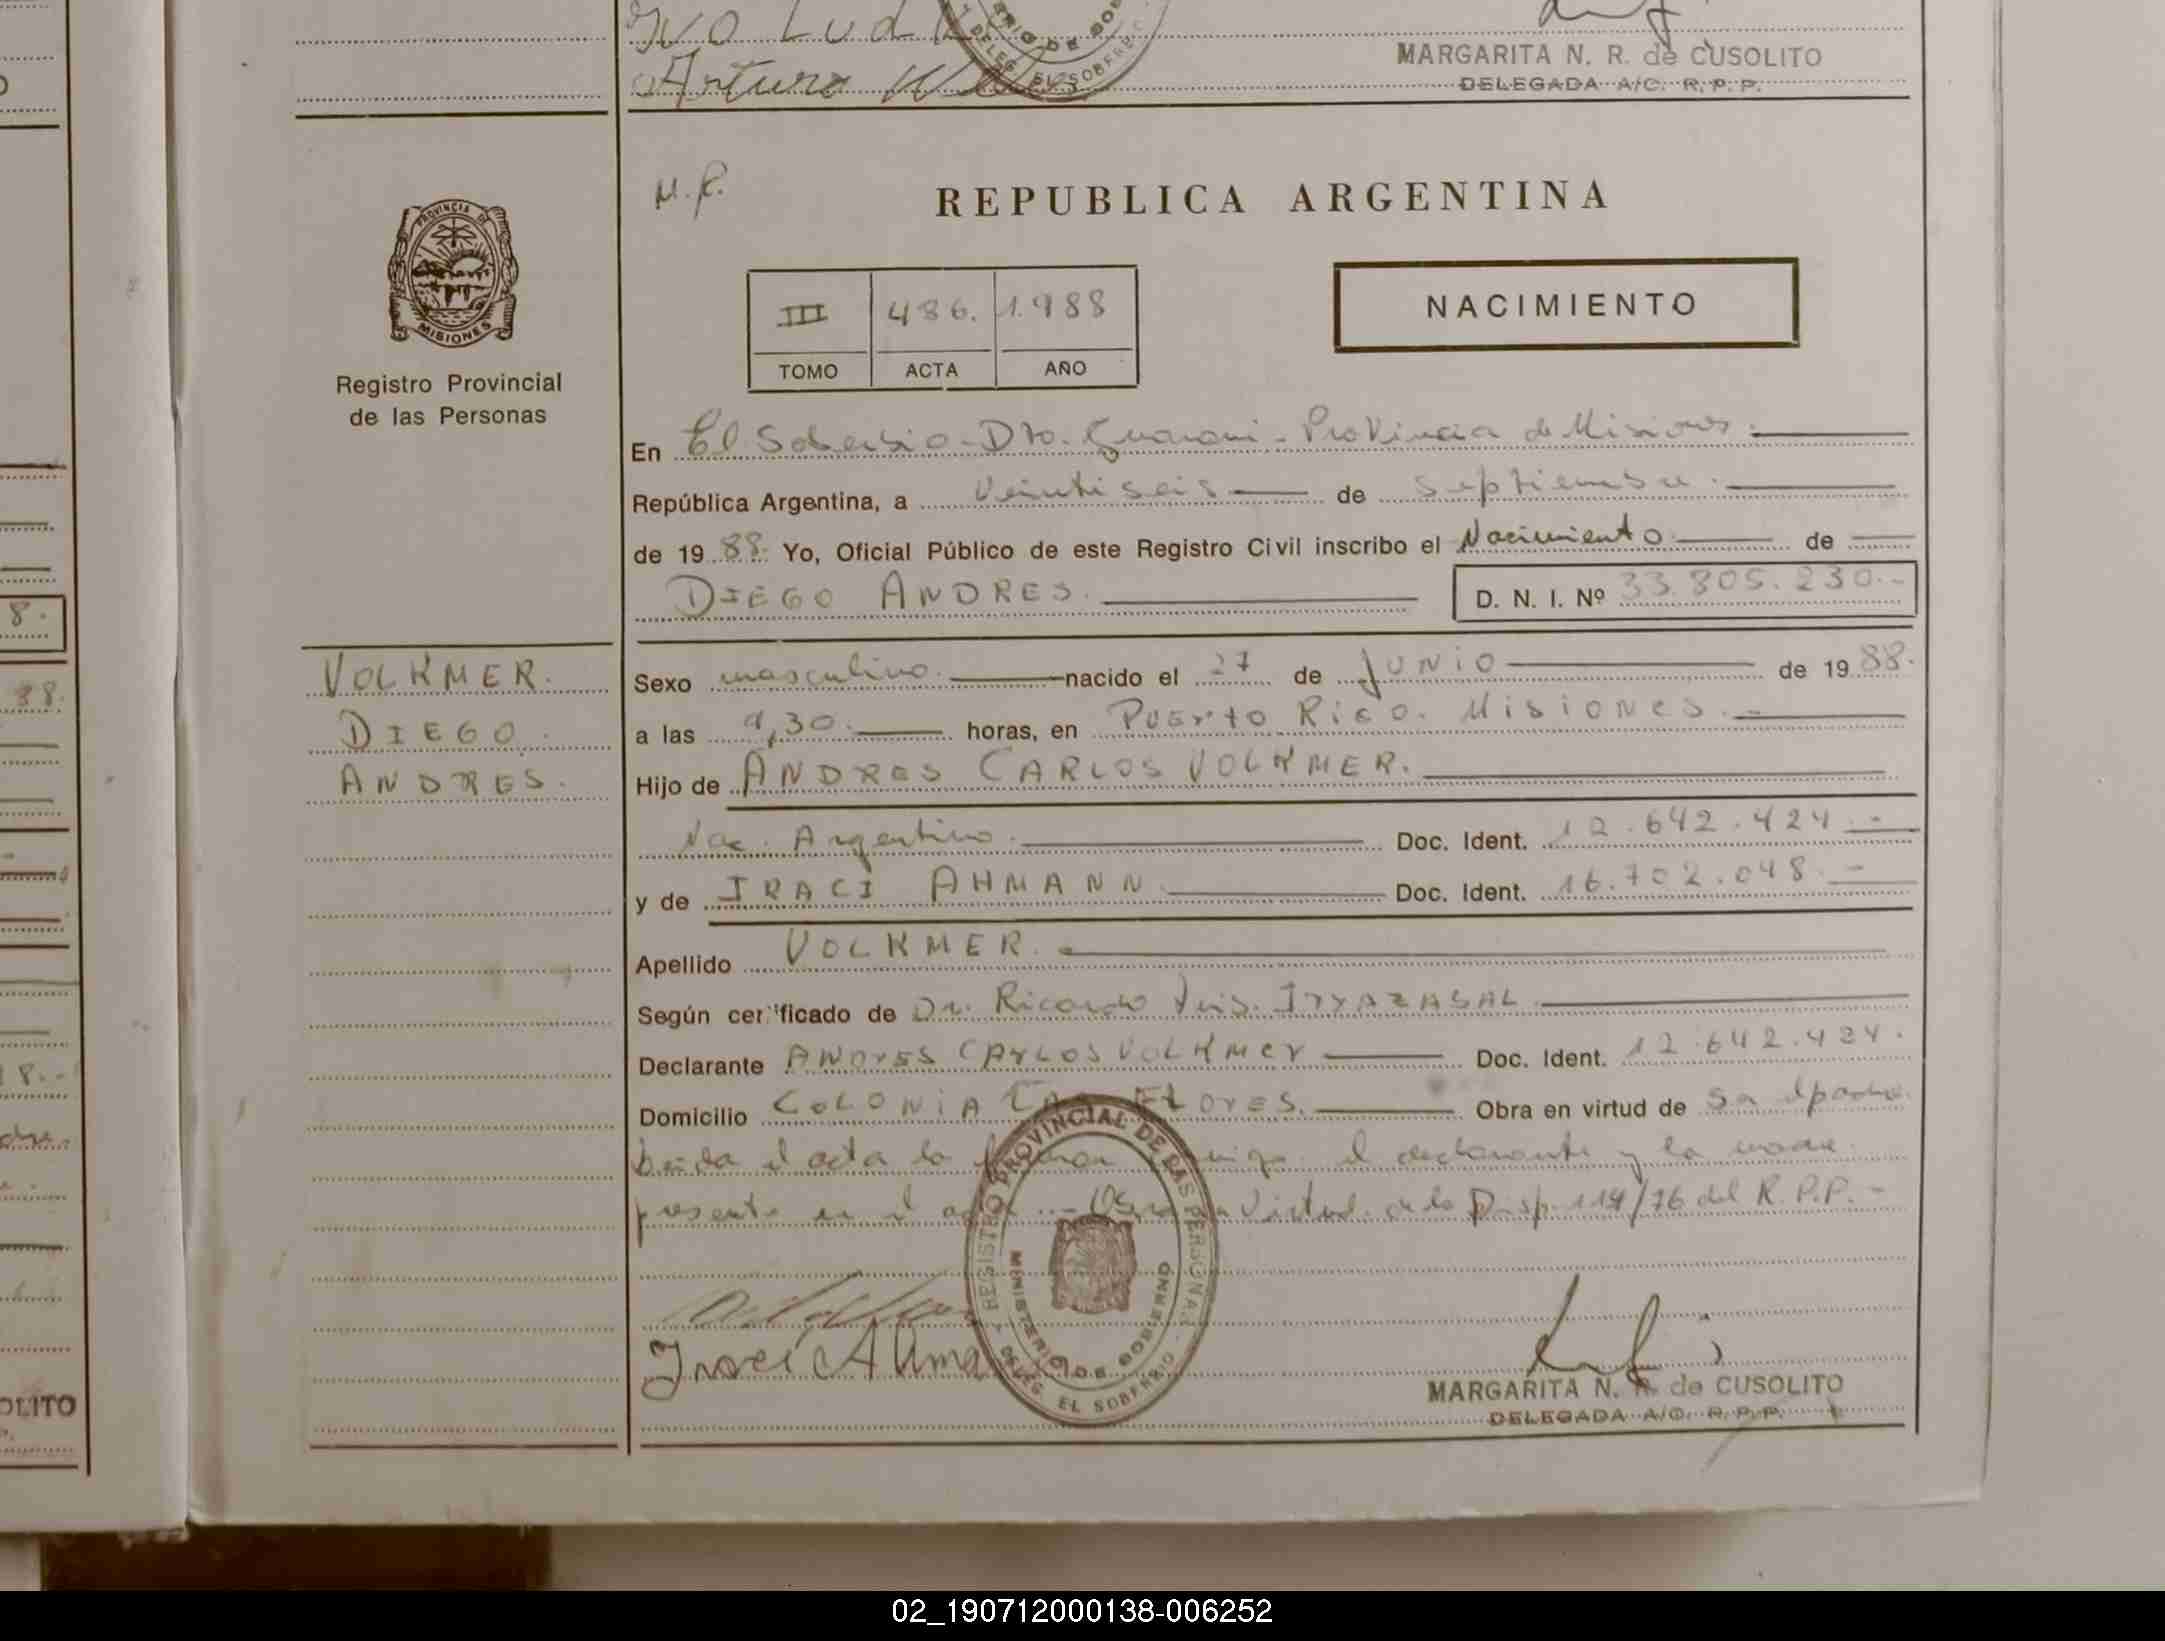 Arturo
MARGARITA N. R. de CUSOLITO
DELEGADA A/C. R. P. P.
M. R.
REPUBLICA ARGENTINA
PROVINCIA DE
MISIONES
Registro Provincial
de las Personas
III 486. 1.988
TOMO ACTA AÑO
NACIMIENTO
En El Soberbio - Dto. Guarani - Provincia de Misiones.
República Argentina, a veintiseis de septiembre.
de 1988. Yo, Oficial Público de este Registro Civil inscribo el Nacimiento de
DIEGO ANDRES. D. N. I. Nº 33.805.230.-
VOLKMER.
DIEGO.
ANDRES.
Sexo masculino. nacido el 27 de JUNIO de 1988.
a las 9,30. horas, en Puerto Rico. Misiones.-
Hijo de ANDRES CARLOS VOLKMER.
Nac. Argentino. Doc. Ident. 12.642.424.-
y de IRACI AHMANN. Doc. Ident. 16.702.048.-
Apellido VOLKMER.
Según certificado de Dr. Ricardo Luis.
Declarante ANDRES CARLOS VOLKMER Doc. Ident. 12.642.424.
Domicilio COLONIA Flores. Obra en virtud de
el acta la el declarante y la madre
presente en el Obra en virtud de la Disp. 114/76 del R.P.P.-
REGISTRO PROVINCIAL DE LAS PERSONAS
MINISTERIO DE GOBIERNO
DELEG. EL SOBERBIO
MARGARITA N. R. de CUSOLITO
DELEGADA A/C. R. P. P.
OLITO
02_190712000138-006252